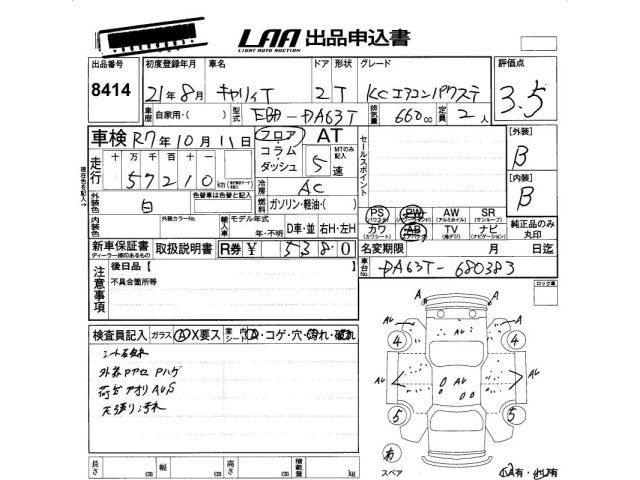 LAA 出品申込書
LIGHT AUTO AUCTION
出品番号 8414
初度登録年月 車名 ドア 形状 グレード 評価点
21年8月 キャリイT 2 T KCエアコンパワステ 3.5
車歴 自家用・( ) 型式 EBD-DA63T 排気量 660cc 定員 2人
車検 R7年10月11日 フロア・コラム・ダッシュ AT MTのみ記入 5速
セールスポイント
[外装] B
[内装] B
走行 十万千百十 57210km
冷房 AC
燃料 ガソリン・軽油・( )
外装色 白 色替車は色替と記入
PS PW AW SR
(パワステ) (パワーウインド) (アルミホイル) (サンルーフ)
カワ AB TV ナビ
(カワシート) (エアバック) (地デジ) (ナビゲーション)
純正品のみ丸印
内装色 外装カラーNo. 輸入車 モデル年式 年・不明 D車・並 右H・左H
新車保証書 取扱説明書 R券 ¥ 5380
ディーラー捺印あるもの
名変期限 月 日迄
車台No. DA63T-680383
ロック車
注意事項 後日品【 】
不具合箇所等
検査員記入 ガラス(A)X要ス 室内シート A・コゲ・穴・汚れ・破れ
外装PアセPハゲ
荷台アオリAUS
天張り汚れ
A A
AU
4 4
AU AU
AU AU
5 5
右
スペア
長さ cm 幅 cm 高さ cm 積載量 kg